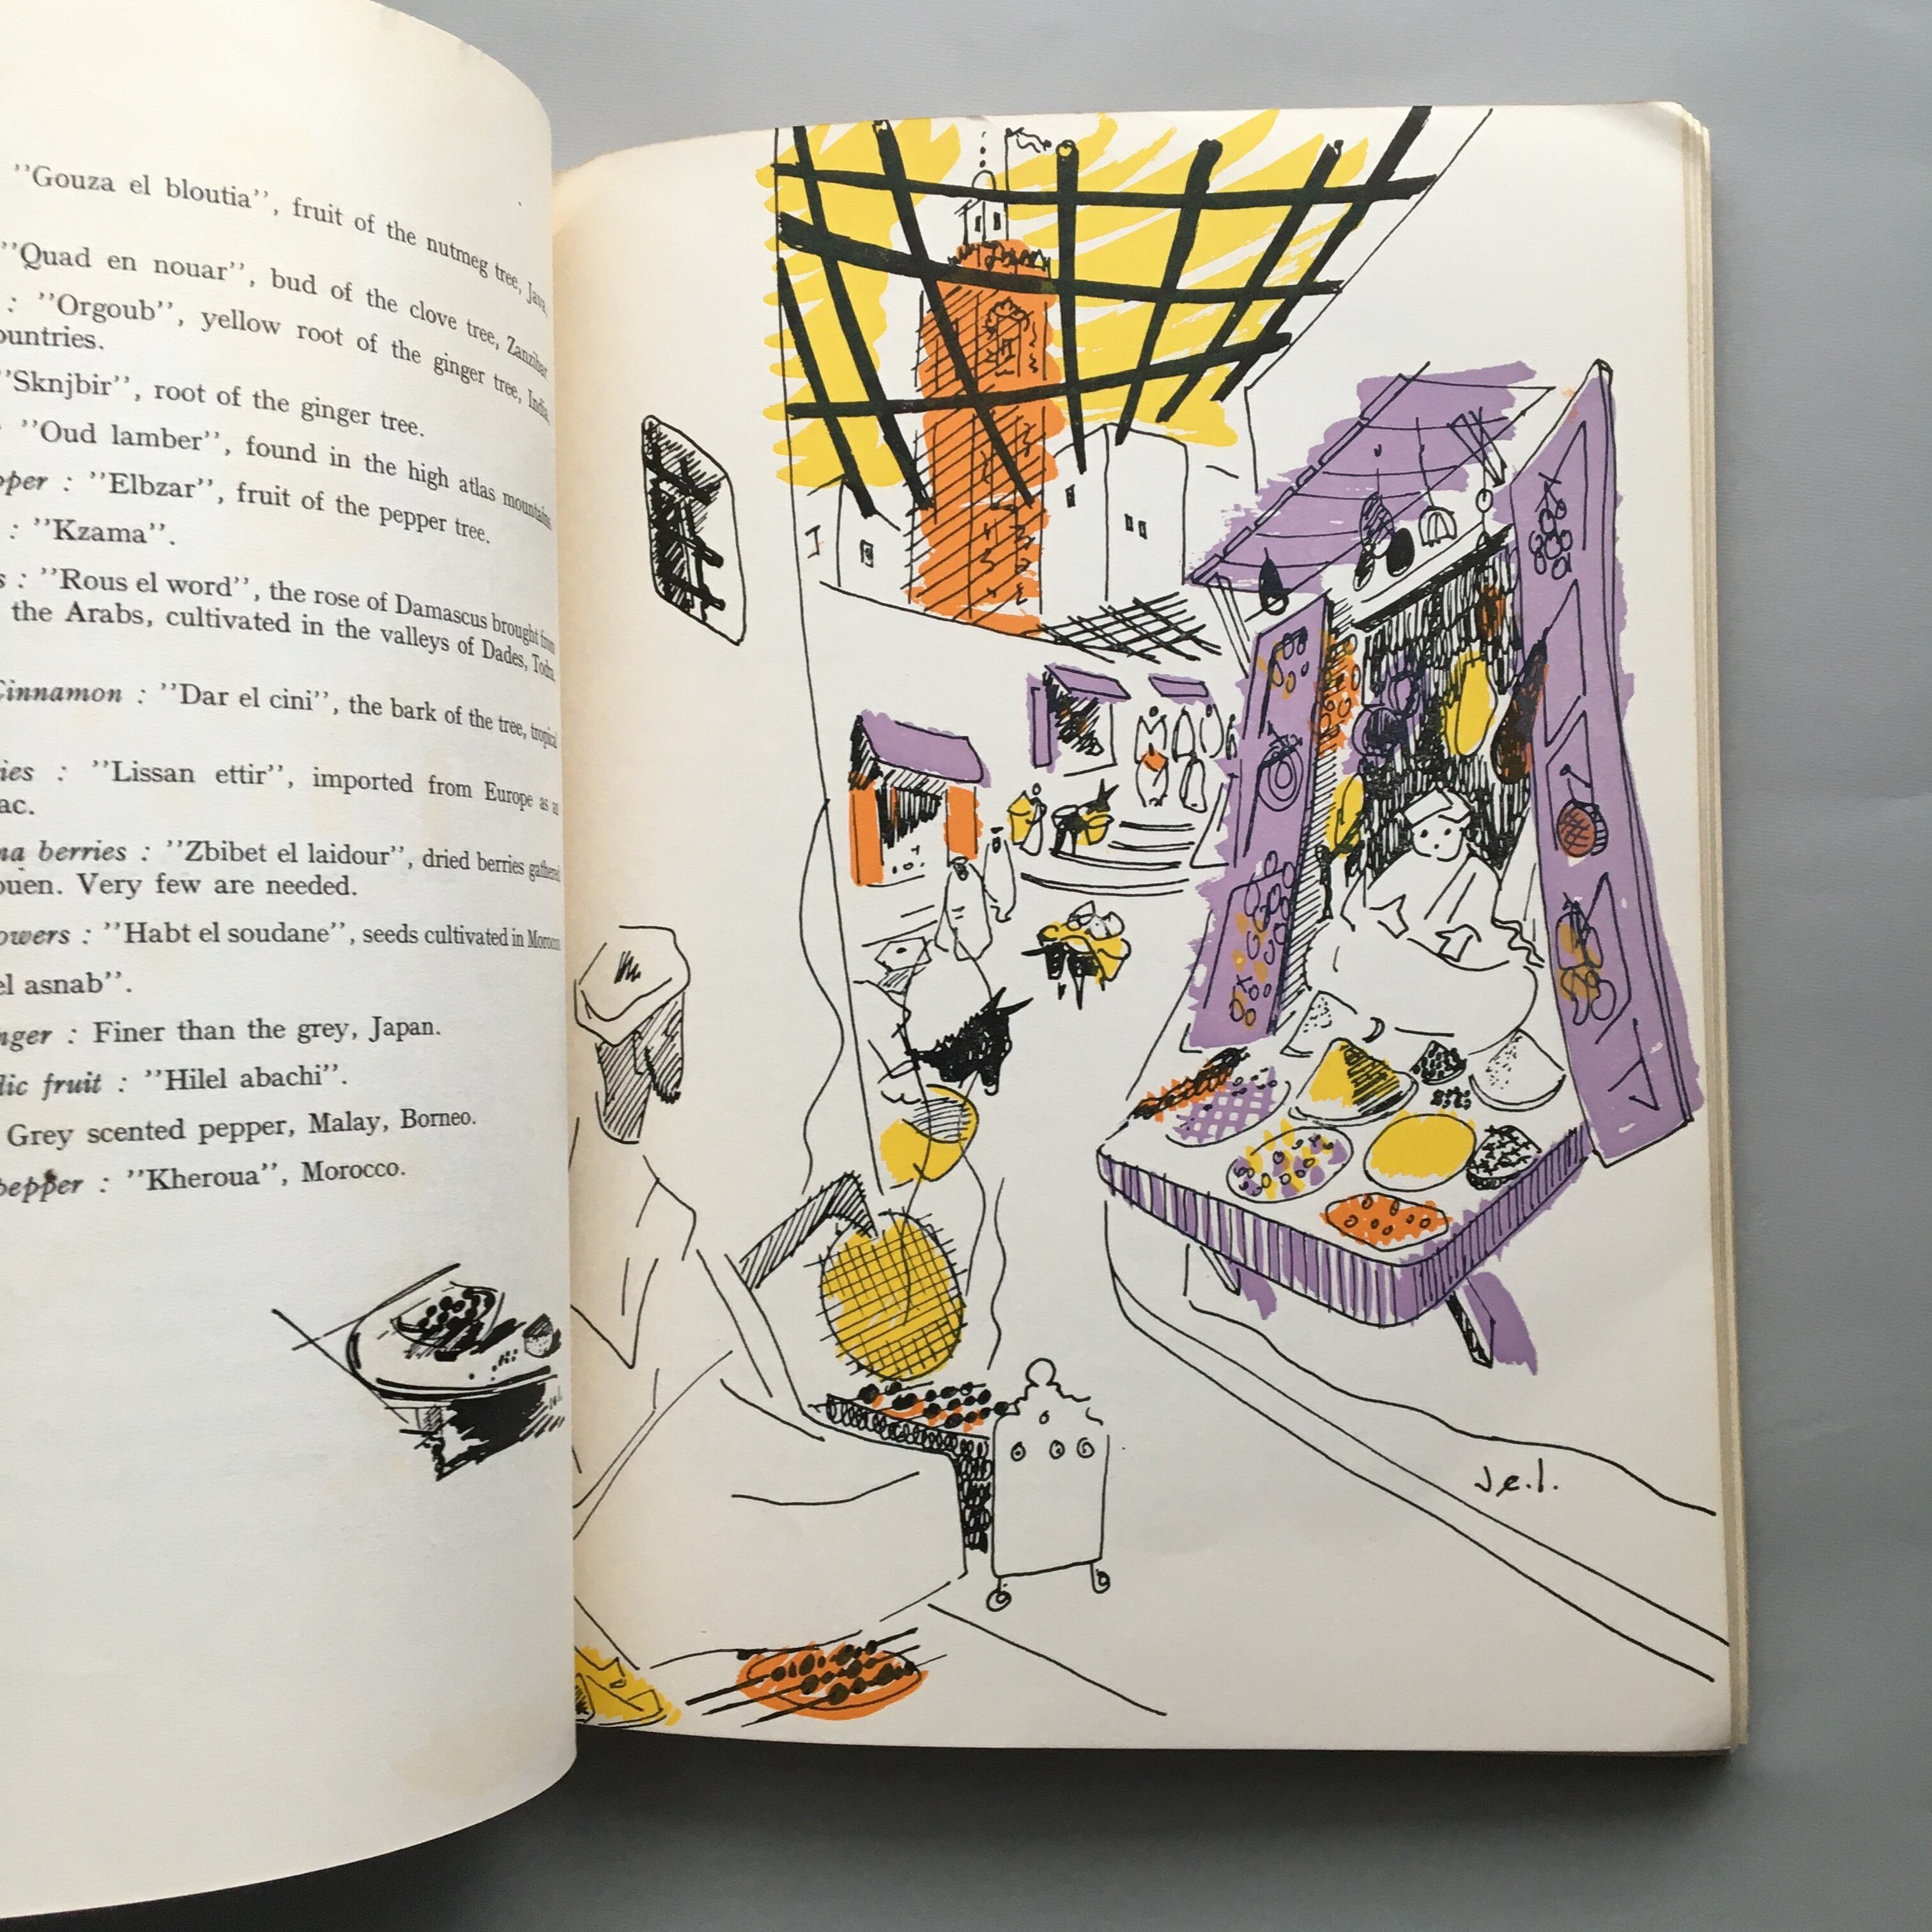 ''Gouza el bloutia'', fruit of the nutmeg tree, Java,
''Quad en nouar'', bud of the clove tree, Zanzibar
: ''Orgoub'', yellow root of the ginger tree, India,
ountries.
''Sknjbir'', root of the ginger tree.
''Oud lamber'', found in the high atlas mountains
pper : ''Elbzar'', fruit of the pepper tree.
: ''Kzama''.
s : ''Rous el word'', the rose of Damascus brought from
the Arabs, cultivated in the valleys of Dades, Todra,
Cinnamon : ''Dar el cini'', the bark of the tree, tropical
ies : ''Lissan ettir'', imported from Europe as an
ac.
na berries : ''Zbibet el laidour'', dried berries gathered
ouen. Very few are needed.
owers : ''Habt el soudane'', seeds cultivated in Morocco
el asnab''.
nger : Finer than the grey, Japan.
dic fruit : ''Hilel abachi''.
Grey scented pepper, Malay, Borneo.
pepper : ''Kheroua'', Morocco.
J.e.l.